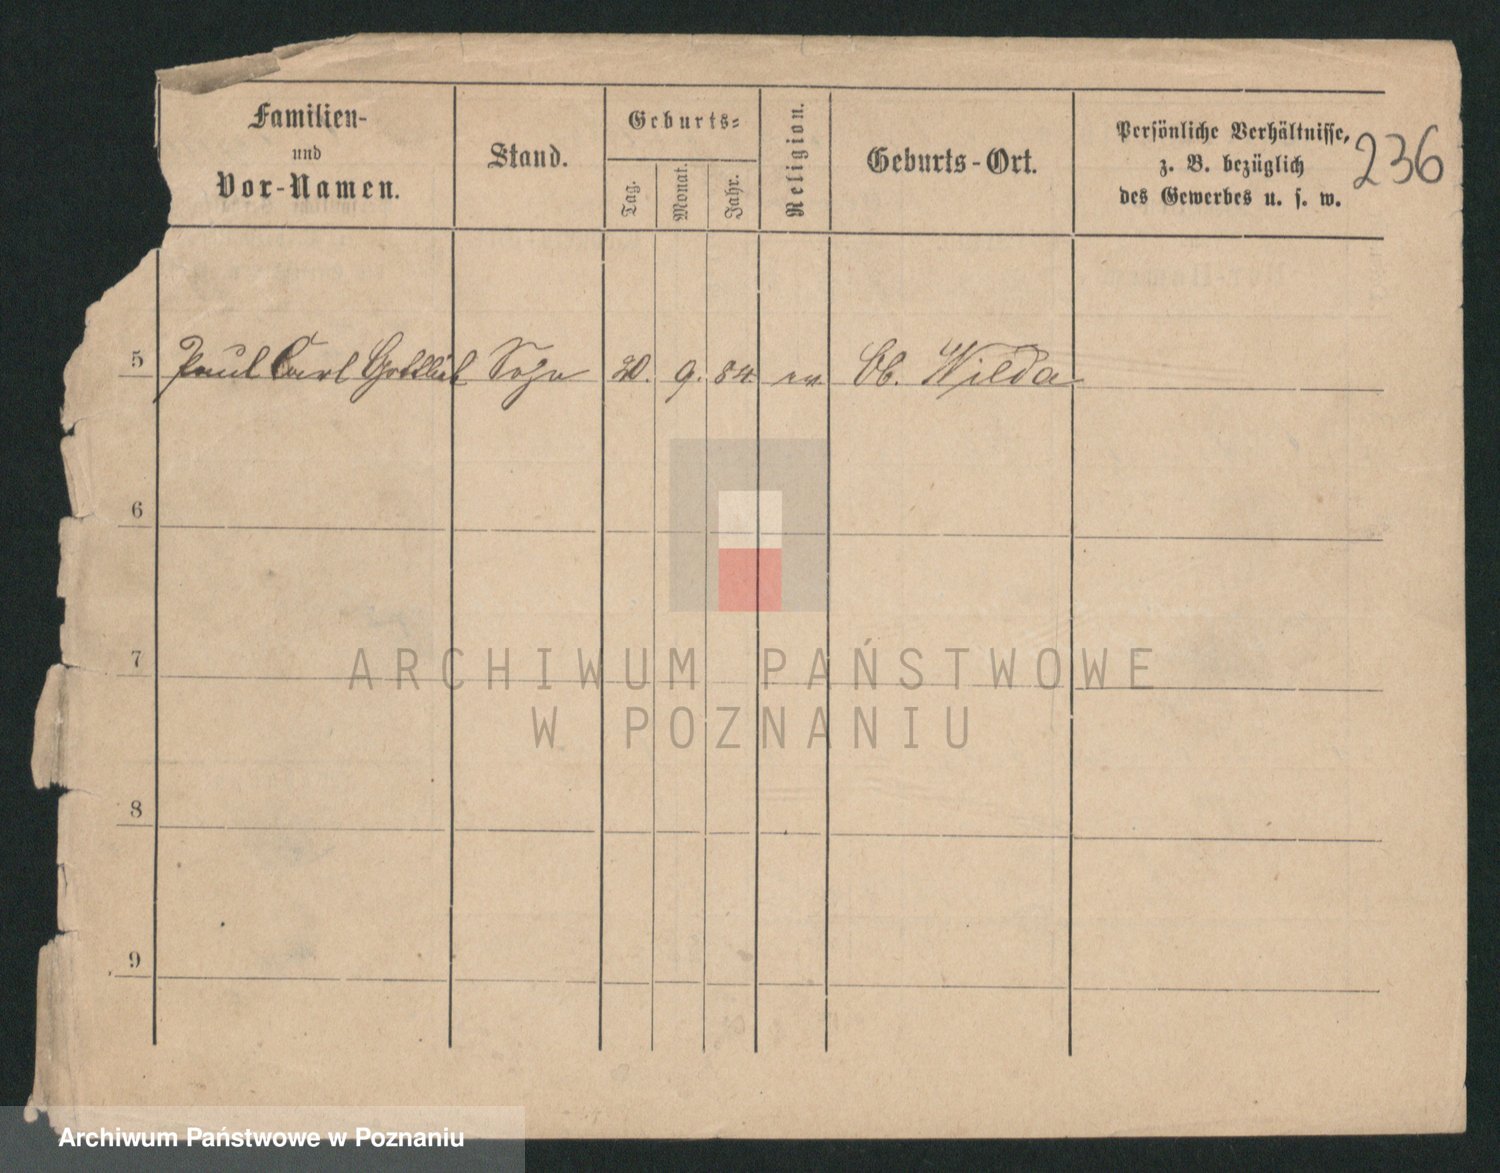 Familien-
und
Vor-Namen.
Stand.
Geburts-
Tag.
Monat.
Jahr.
Religion.
Geburts-Ort.
Persönliche Verhältnisse,
z. B. bezüglich
des Gewerbes u. s. w.
236
5 Paul Carl Gottlieb Sohn 20. 9. 84 ev Ob. Wilda
6
7
8
9
ARCHIWUM PAŃSTWOWE
W POZNANIU
Archiwum Państwowe w Poznaniu